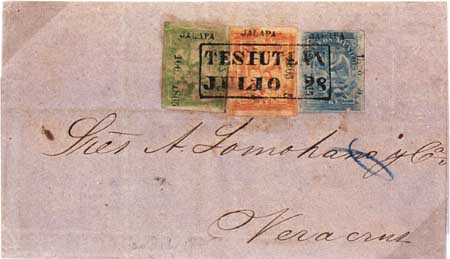 JALAPA JALAPA JALAPA
TESIUTLAN
JULIO 28
Sres A. Lomohano y Ca.
Veracruz